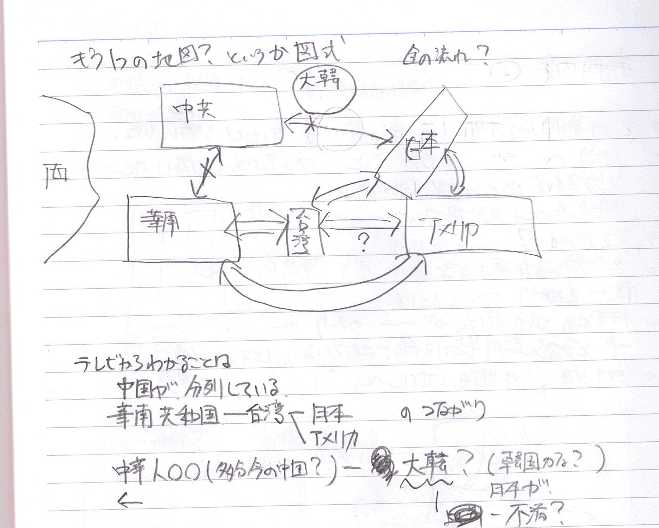 もう1つの地図? というか図式 金の流れ?
大韓
中共
日本
西
華南
台湾
アメリカ
?
テレビからわかることは
中国が分列している
華南共和国―台湾―日本 のつながり
アメリカ
中華人〇〇(多分今の中国?)― 大韓?(韓国かな?)
← 日本が
―不満?